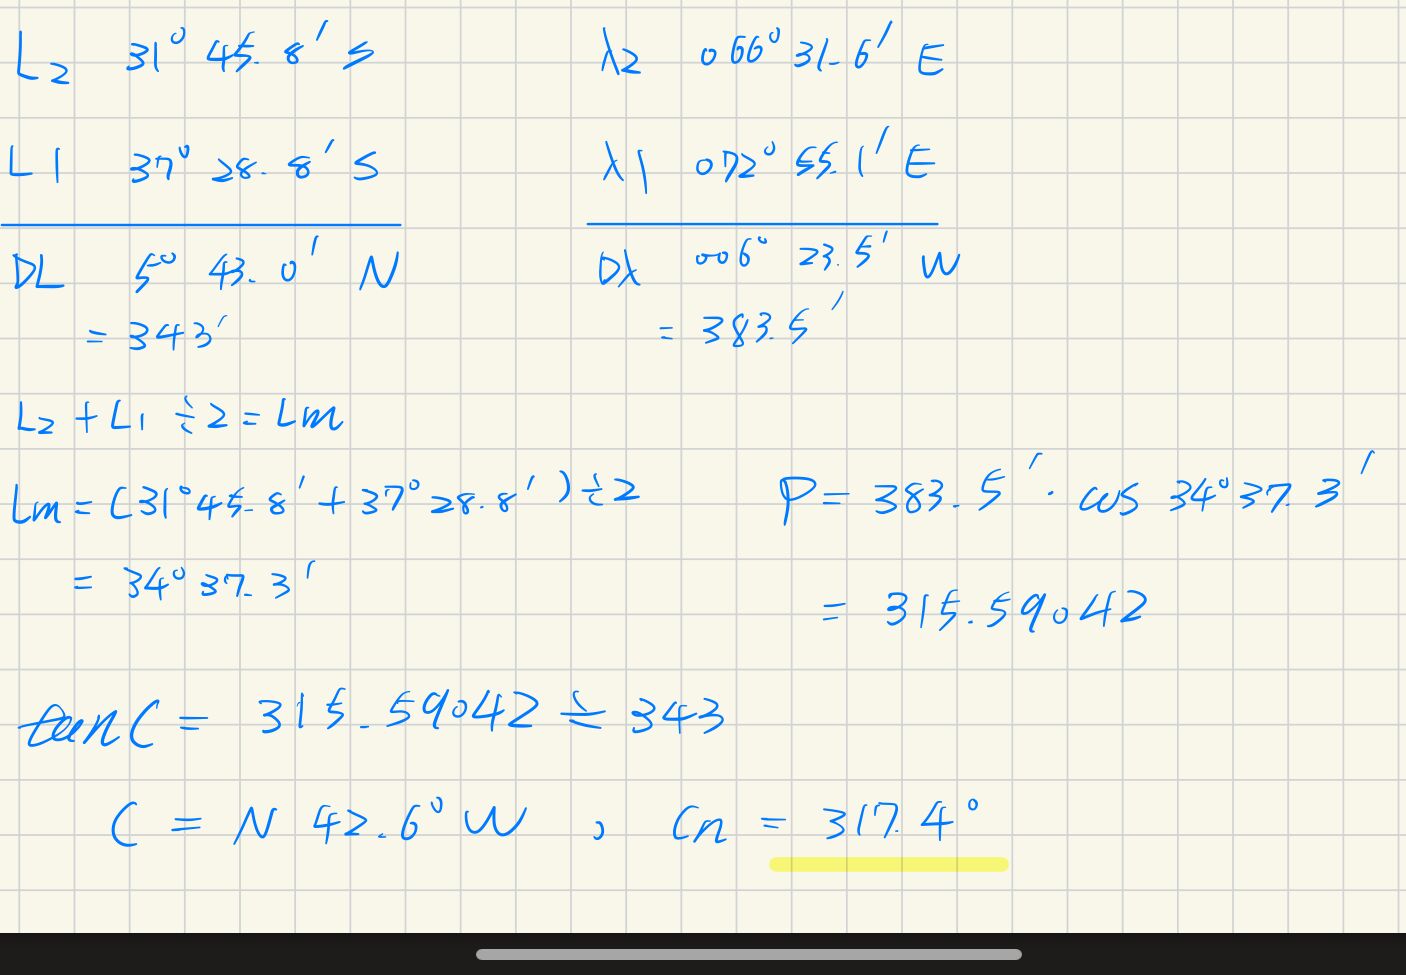 L2 31° 45.8' S λ2 066° 31.6' E
L1 37° 28.8' S λ1 072° 55.1' E
DL 5° 43.0' N Dλ 006° 23.5' W
= 343' = 383.5'
L2 + L1 ÷2 = Lm
Lm = (31°45.8' + 37°28.8') ÷2 P = 383.5' · cos 34°37.3'
= 34° 37.3'
= 315.59042
tan C = 315.59042 ÷ 343
C = N 42.6° W , Cn = 317.4°